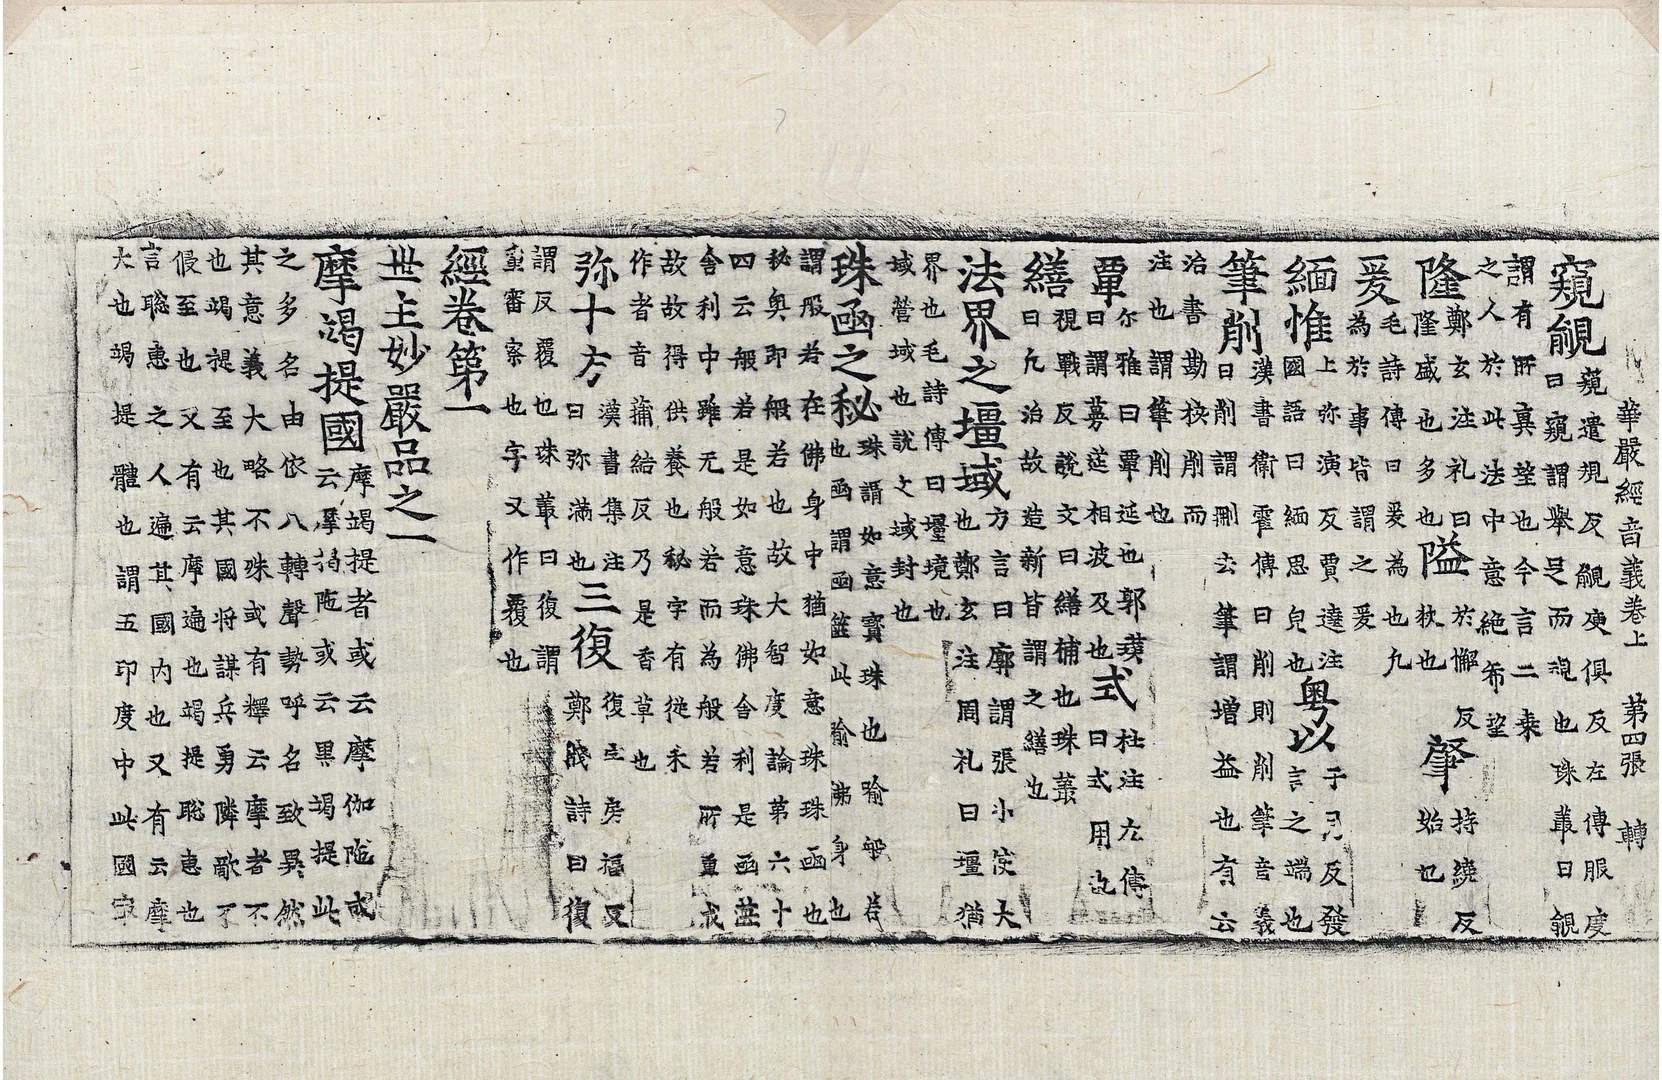 華嚴經音義卷上 第四張 轉
窺覦窺遣規反覦庾俱反左傳服虔
曰窺謂舉足而視也珠叢曰覦
謂有所冀望也今言二乘
之人於此法中意絶希望
隆鄭玄注礼曰隘於懈反肇持繞反
隆盛也多也狹也始也
爰毛詩傳曰爰為也凡
為於事皆謂之爰
緬惟上弥演反賈逵注粤以于月反發
國語曰緬思皃也言之端也
筆削漢書衛霍傳曰削則削筆音義
曰削謂刪去筆謂增益也有云
治書勘挍削而
注也謂筆削也
覃尒雅曰覃延也郭璞式杜注左傳
曰謂蔓莚相波及也曰式用也
繕視戰反說文曰繕補也珠叢
曰凡治故造新皆謂之繕也
法界之壃域方言曰廓謂張小使大
也鄭玄注周礼曰壃猶
界也毛詩傳曰壃境也
域營域也說文域封也
珠函之秘珠謂如意寶珠也喻般若
也函謂函篋此喻佛身也
謂般若在佛身中猶如意珠珠函也
秘奥即般若也故大智度論第六十
四云般若是如意珠佛舍利是函篋
舍利中雖无般若而為般若所熏或
故故得供養也秘字有從禾
作者音蒲結反乃是香草也
弥十方漢書集注三復復亡房福反又
曰弥滿也鄭牋詩曰復
謂反覆也珠叢曰復謂
重審察也字又作覆也
經卷第一
世主妙嚴品之一
摩竭提國摩竭提者或云摩伽陁或
云摩揭陁或云墨竭提此
之多名由依八轉聲勢呼名致異然
其意義大略不殊或有釋云摩者不
也竭提至也其國将謀兵勇隣敵不
侵至也又有云摩遍也竭提聡惠也
言聡惠之人遍其國内也又有云摩
大也竭提體也謂五印度中此國